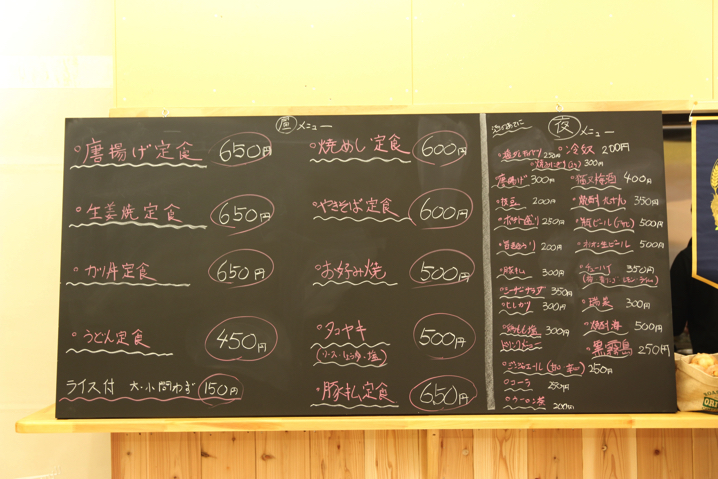 昼メニュー
唐揚げ定食 650円
生姜焼定食 650円
カツ丼定食 650円
うどん定食 450円
ライス付 大・小問わず 150円
焼めし定食 600円
やきそば定食 600円
お好み焼 500円
タコヤキ 500円
(ソース・しょうゆ・塩)
豚キム定食 650円
夜メニュー
250円
300円
唐揚げ 300円
枝豆 200円
ポテト盛り 250円
200円
豚キム 300円
シーザーサラダ 350円
ヒレカツ 300円
300円
ドリンクメニュー
ジンジャエール(甘口 辛口) 250円
コーラ 250円
ウーロン茶 200円
冷奴 200円
400円
350円
瓶ビール 500円
生ビール 500円
チューハイ 350円
300円
500円
黒霧島 250円